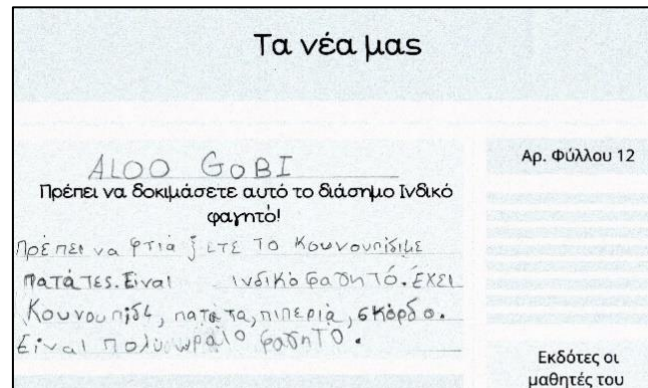 Τα νέα μας
ALOO GOBI
Πρέπει να δοκιμάσετε αυτό το διάσημο Ινδικό
φαγητό!
Πρέπει να φτιάξετε το κουνουπίδιμε
πατάτες. Είναι ινδικό φαγητό. Έχει
Κουνουπίδι, πατάτα, πιπεριά, σκόρδο.
Είναι πολυ ωραίο φαγητο.
Αρ. Φύλλου 12
Εκδότες οι
μαθητές του